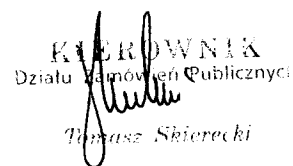 KIEROWNIK
Działu Zamówień Publicznych
Tomasz Skierecki